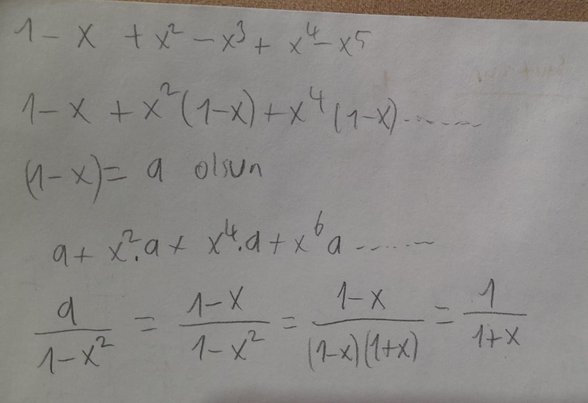 1 - x + x² - x³ + x⁴ - x⁵
1 - x + x²(1-x) + x⁴(1-x) ........
(1-x) = a olsun
a + x².a + x⁴.a + x⁶a ........
a/(1-x²) = (1-x)/(1-x²) = (1-x)/((1-x)(1+x)) = 1/(1+x)